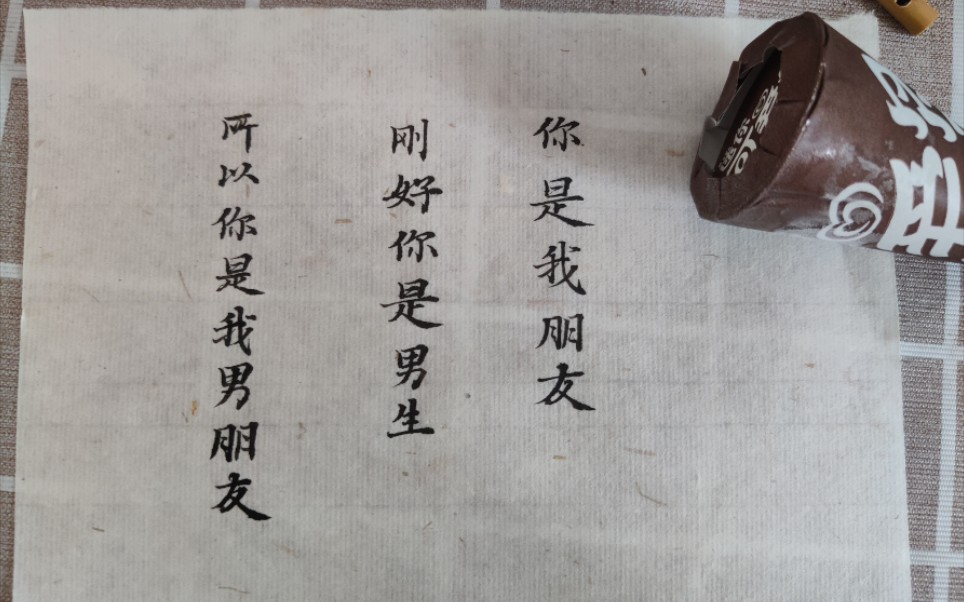 你是我朋友
刚好你是男生
所以你是我男朋友